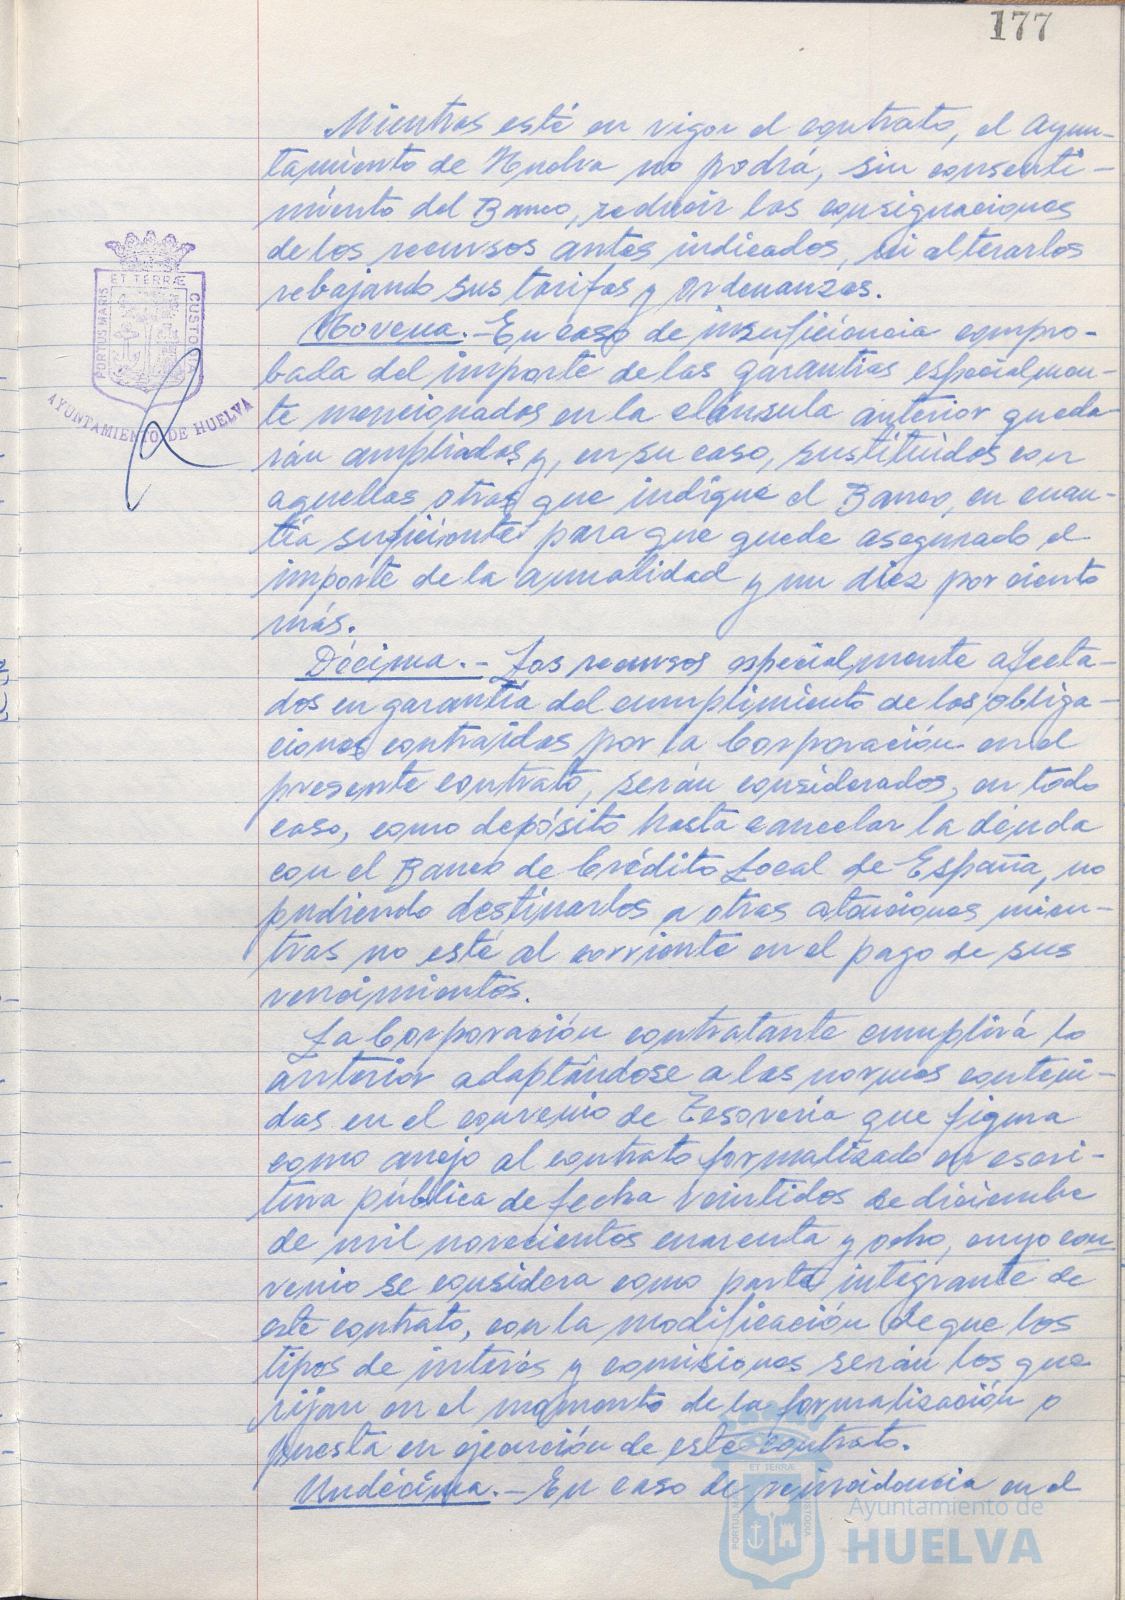 177
Mientras esté en vigor el contrato, el Ayun-
tamiento de Huelva no podrá, sin consenti-
miento del Banco, reducir las consignaciones
de los recursos antes indicados, ni alterarlos
rebajando sus tarifas y ordenanzas.
Novena.- En caso de insuficiencia compro-
bada del importe de las garantías especialmen-
te mencionadas en la cláusula anterior queda-
rán ampliadas y, en su caso, sustituidas con
aquellas otras que indique el Banco, en cuan-
tía suficiente para que quede asegurado el
importe de la anualidad y un diez por ciento
más.
Décima.- Los recursos especialmente afecta-
dos en garantía del cumplimiento de las obliga-
ciones contraídas por la Corporación en el
presente contrato, serán considerados, en todo
caso, como depósito hasta cancelar la deuda
con el Banco de Crédito Local de España, no
pudiendo destinarlos a otras atenciones mien-
tras no esté al corriente en el pago de sus
vencimientos.
La Corporación contratante cumplirá lo
anterior adaptándose a las normas conteni-
das en el convenio de Tesorería que figura
como anejo al contrato formalizado en escri-
tura pública de fecha veintidos de diciembre
de mil novecientos cuarenta y ocho, cuyo con-
venio se considera como parte integrante de
este contrato, con la modificación de que los
tipos de interés y comisiones serán los que
rijan en el momento de la formalización o
puesta en ejecución de este contrato.
Undécima.- En caso de reincidencia en el
PORTUS MARIS
ET TERRÆ
CUSTODIA
AYUNTAMIENTO DE HUELVA
PORTUS MARIS
ET TERRÆ
CUSTODIA
Ayuntamiento de
HUELVA